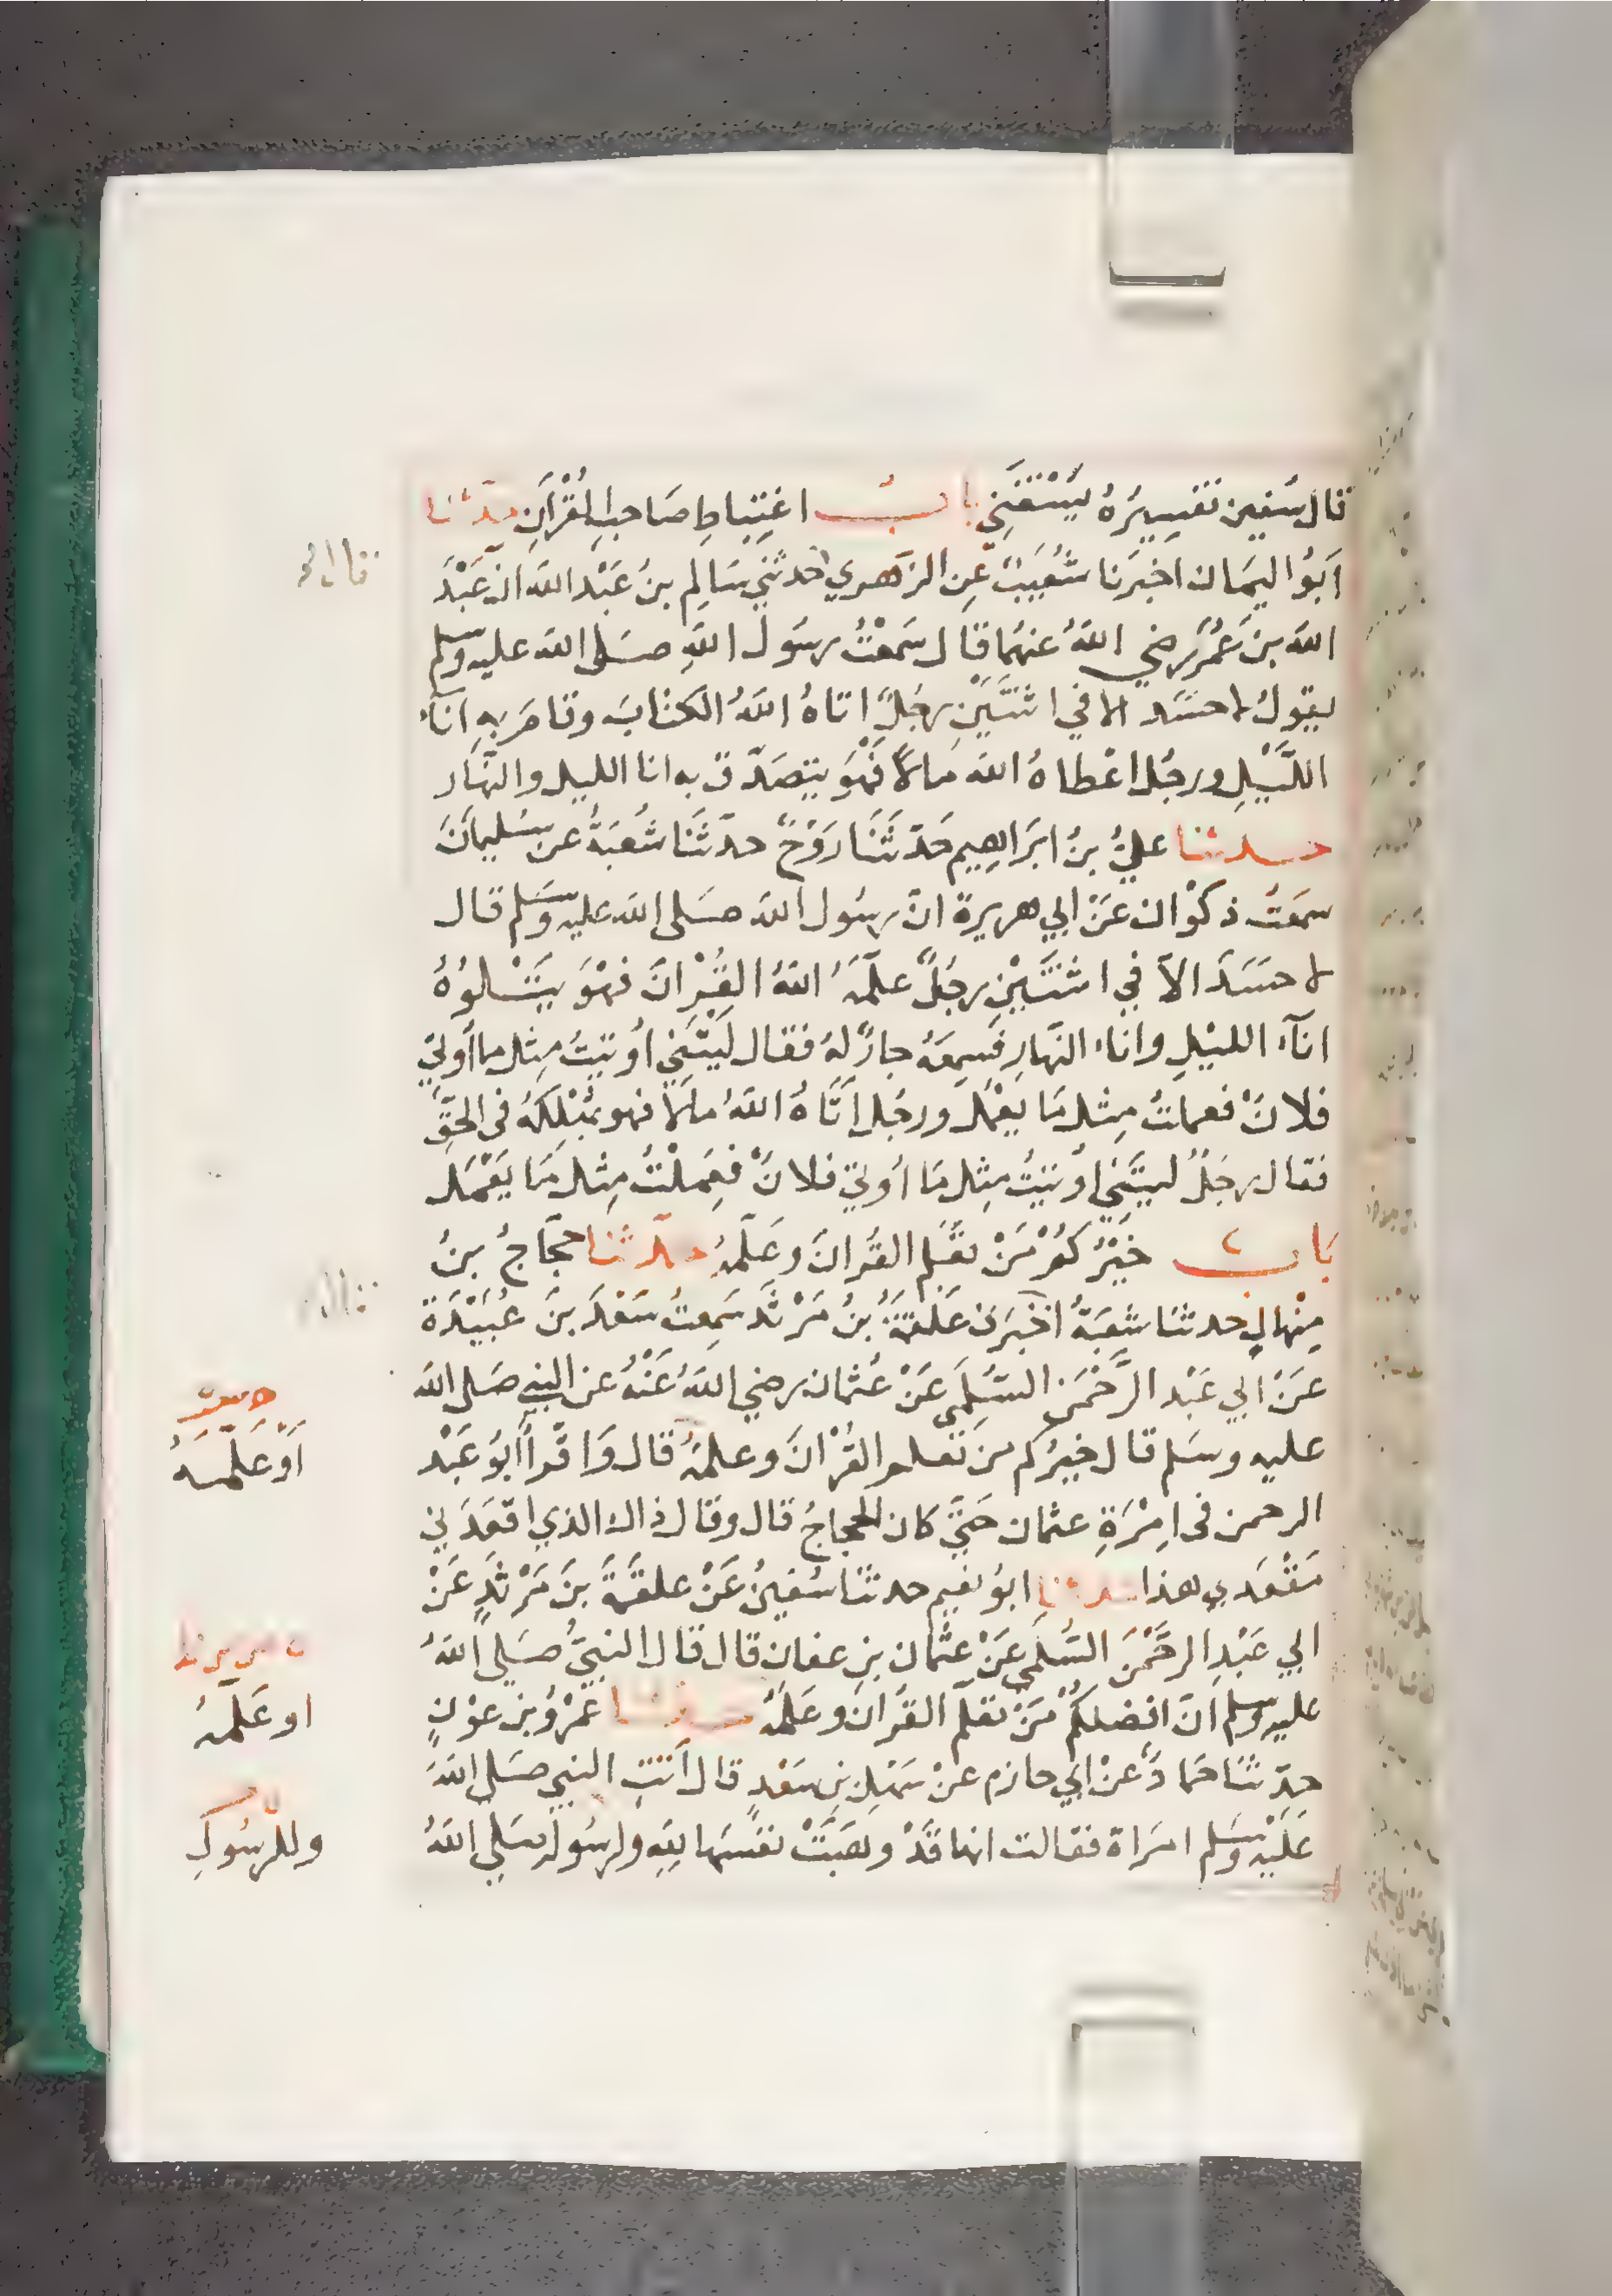 قال سفين تفسيره يستغني باب اغتباط صاحب القران حدثنا
ابو اليمان اخبرنا شعيب عن الزهري حدثني سالم بن عبد الله ان عبد
الله بن عمر رضي الله عنهما قال سمعت رسول الله صلى الله عليه وسلم
يقول لا حسد الا في اثنتين رجل اتاه الله الكتاب وقام به اناء
الليل ورجل اعطاه الله مالا فهو يتصدق به انا الليل والنهار
حدثنا علي بن ابراهيم حدثنا روح حدثنا شعبة عن سليمان
سمعت ذكوان عن ابي هريرة ان رسول الله صلى الله عليه وسلم قال
لا حسد الا في اثنتين رجل علمه الله القران فهو يتلوه
اناء الليل واناء النهار فسمعه جار له فقال ليتني اوتيت مثل ما اوتي
فلان فعملت مثل ما يعمل ورجل اتاه الله مالا فهو يهلكه في الحق
فقال رجل ليتني اوتيت مثل ما اوتي فلان فعملت مثل ما يعمل
باب خيركم من تعلم القران وعلمه حدثنا حجاج بن
منهال حدثنا شعبة اخبرني علقمة بن مرثد سمعت سعد بن عبيدة
عن ابي عبد الرحمن السلمي عن عثمان رضي الله عنه عن النبي صلى الله
عليه وسلم قال خيركم من تعلم القران وعلمه قال واقرا ابو عبد
الرحمن في امرة عثمان حتى كان الحجاج قال وقال ذاك الذي اقعدني
مقعدي هذا حدثنا ابو نعيم حدثنا سفين عن علقمة بن مرثد عن
ابي عبد الرحمن السلمي عن عثمان بن عفان قال قال النبي صلى الله
عليه وسلم ان افضلكم من تعلم القران وعلمه حدثنا عمرو بن عون
حدثنا حماد عن ابي حازم عن سهل بن سعد قال اتت النبي صلى الله
عليه وسلم امراة فقالت انها قد وهبت نفسها لله ولرسوله صلى الله
او علمه
او علمه
وللرسول